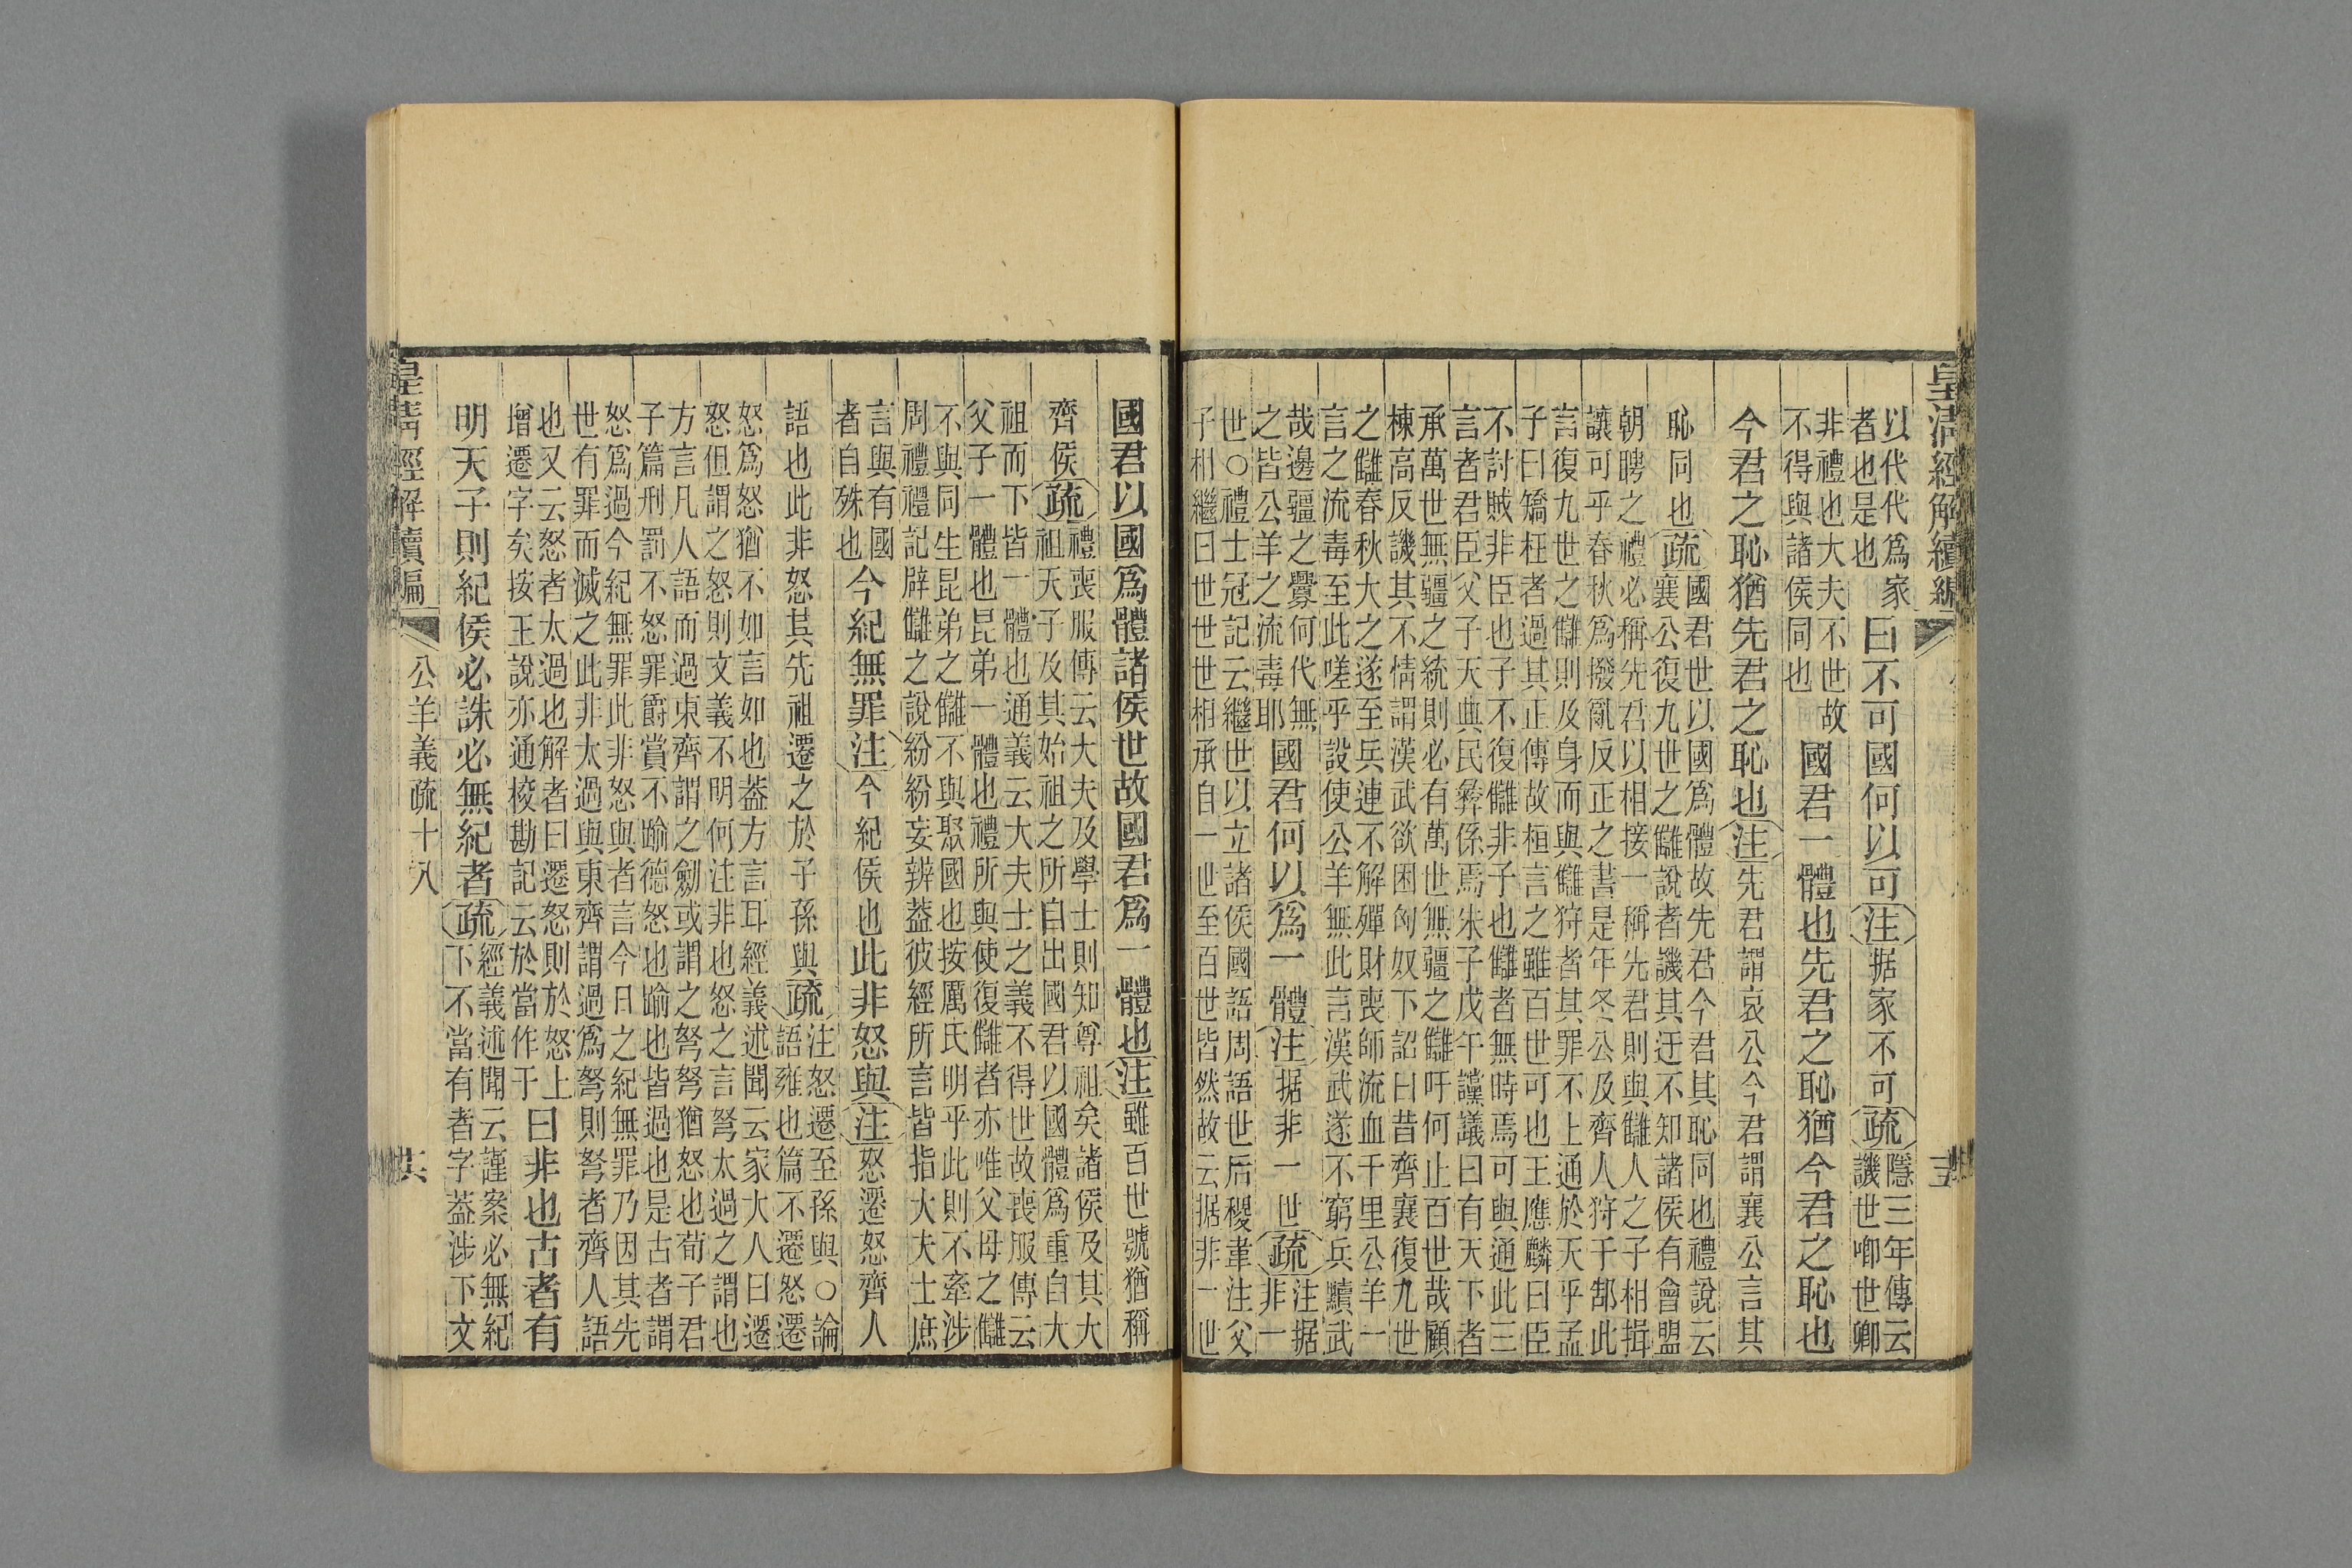 皇清經解續編
以代代爲家
者也是也
曰不可國何以可注据家不可疏
隱三年傳云
譏世卿世卿
非禮也大夫不世故
不得與諸侯同也
國君一體也先君之恥猶今君之恥也
今君之恥猶先君之恥也注先君謂哀公今君謂襄公言其
恥同也疏
國君世以國爲體故先君今君其恥同也禮說云
襄公復九世之讎說者譏其迂不知諸侯有會盟
朝聘之禮必稱先君以相接一稱先君則與讎人之子相揖
讓可乎春秋爲撥亂反正之書是年冬公及齊人狩于郜此
言復九世之讎則及身而與讎狩者其罪不上通於天乎孟
子曰矯枉者過其正傳故桓言之雖百世可也王應麟曰臣
不討賊非臣也子不復讎非子也讎者無時焉可與通此三
言者君臣父子天典民彝係焉朱子戊午讜議曰有天下者
承萬世無疆之統則必有萬世無疆之讎吁何止百世哉顧
棟高反譏其不情謂漢武欲困匈奴下詔曰昔齊襄復九世
之讎春秋大之遂至兵連不解殫財喪師流血千里公羊一
言之流毒至此嗟乎設使公羊無此言漢武遂不窮兵黷武
哉邊疆之釁何代無
之皆公羊之流毒耶
國君何以爲一體注据非一世疏
注据
非一
世○禮士冠記云繼世以立諸侯國語周語世后稷韋注父
子相繼曰世世世世相承自一世至百世皆然故云据非一世
國君以國爲體諸侯世故國君爲一體也注雖百世號猶稱
齊侯疏
禮喪服傳云大夫及學士則知尊祖矣諸侯及其大
祖天子及其始祖之所自出國君以國體爲重自大
祖而下皆一體也通義云大夫士之義不得世故喪服傳云
父子一體也昆弟一體也禮所與使復讎者亦唯父母之讎
不與同生昆弟之讎不與聚國也按厲氏明乎此則不牽涉
周禮禮記辟讎之說紛紛妄辨葢彼經所言皆指大夫士庶
言與有國
者自殊也
今紀無罪注今紀侯也此非怒與注怒遷怒齊人
語也此非怒其先祖遷之於子孫與疏
注怒遷至孫與○論
語雍也篇不遷怒遷
怒爲怒猶不如言如也葢方言耳經義述聞云家大人曰遷
怒但謂之怒則文義不明何注非也怒之言弩太過之謂也
方言凡人語而過東齊謂之劒或謂之弩弩猶怒也荀子君
子篇刑罰不怒罪爵賞不踰德怒也踰也皆過也是古者謂
怒爲過今紀無罪此非怒與者言今日之紀無罪乃因其先
世有罪而滅之此非太過與東齊謂過爲弩則弩者齊人語
也又云怒者太過也解者曰遷怒則於怒上
增遷字矣按王說亦通挍勘記云於當作于
曰非也古者有
明天子則紀侯必誅必無紀者疏
經義述聞云謹案必無紀
下不當有者字葢涉下文
皇清經解續編
公羊義疏十八